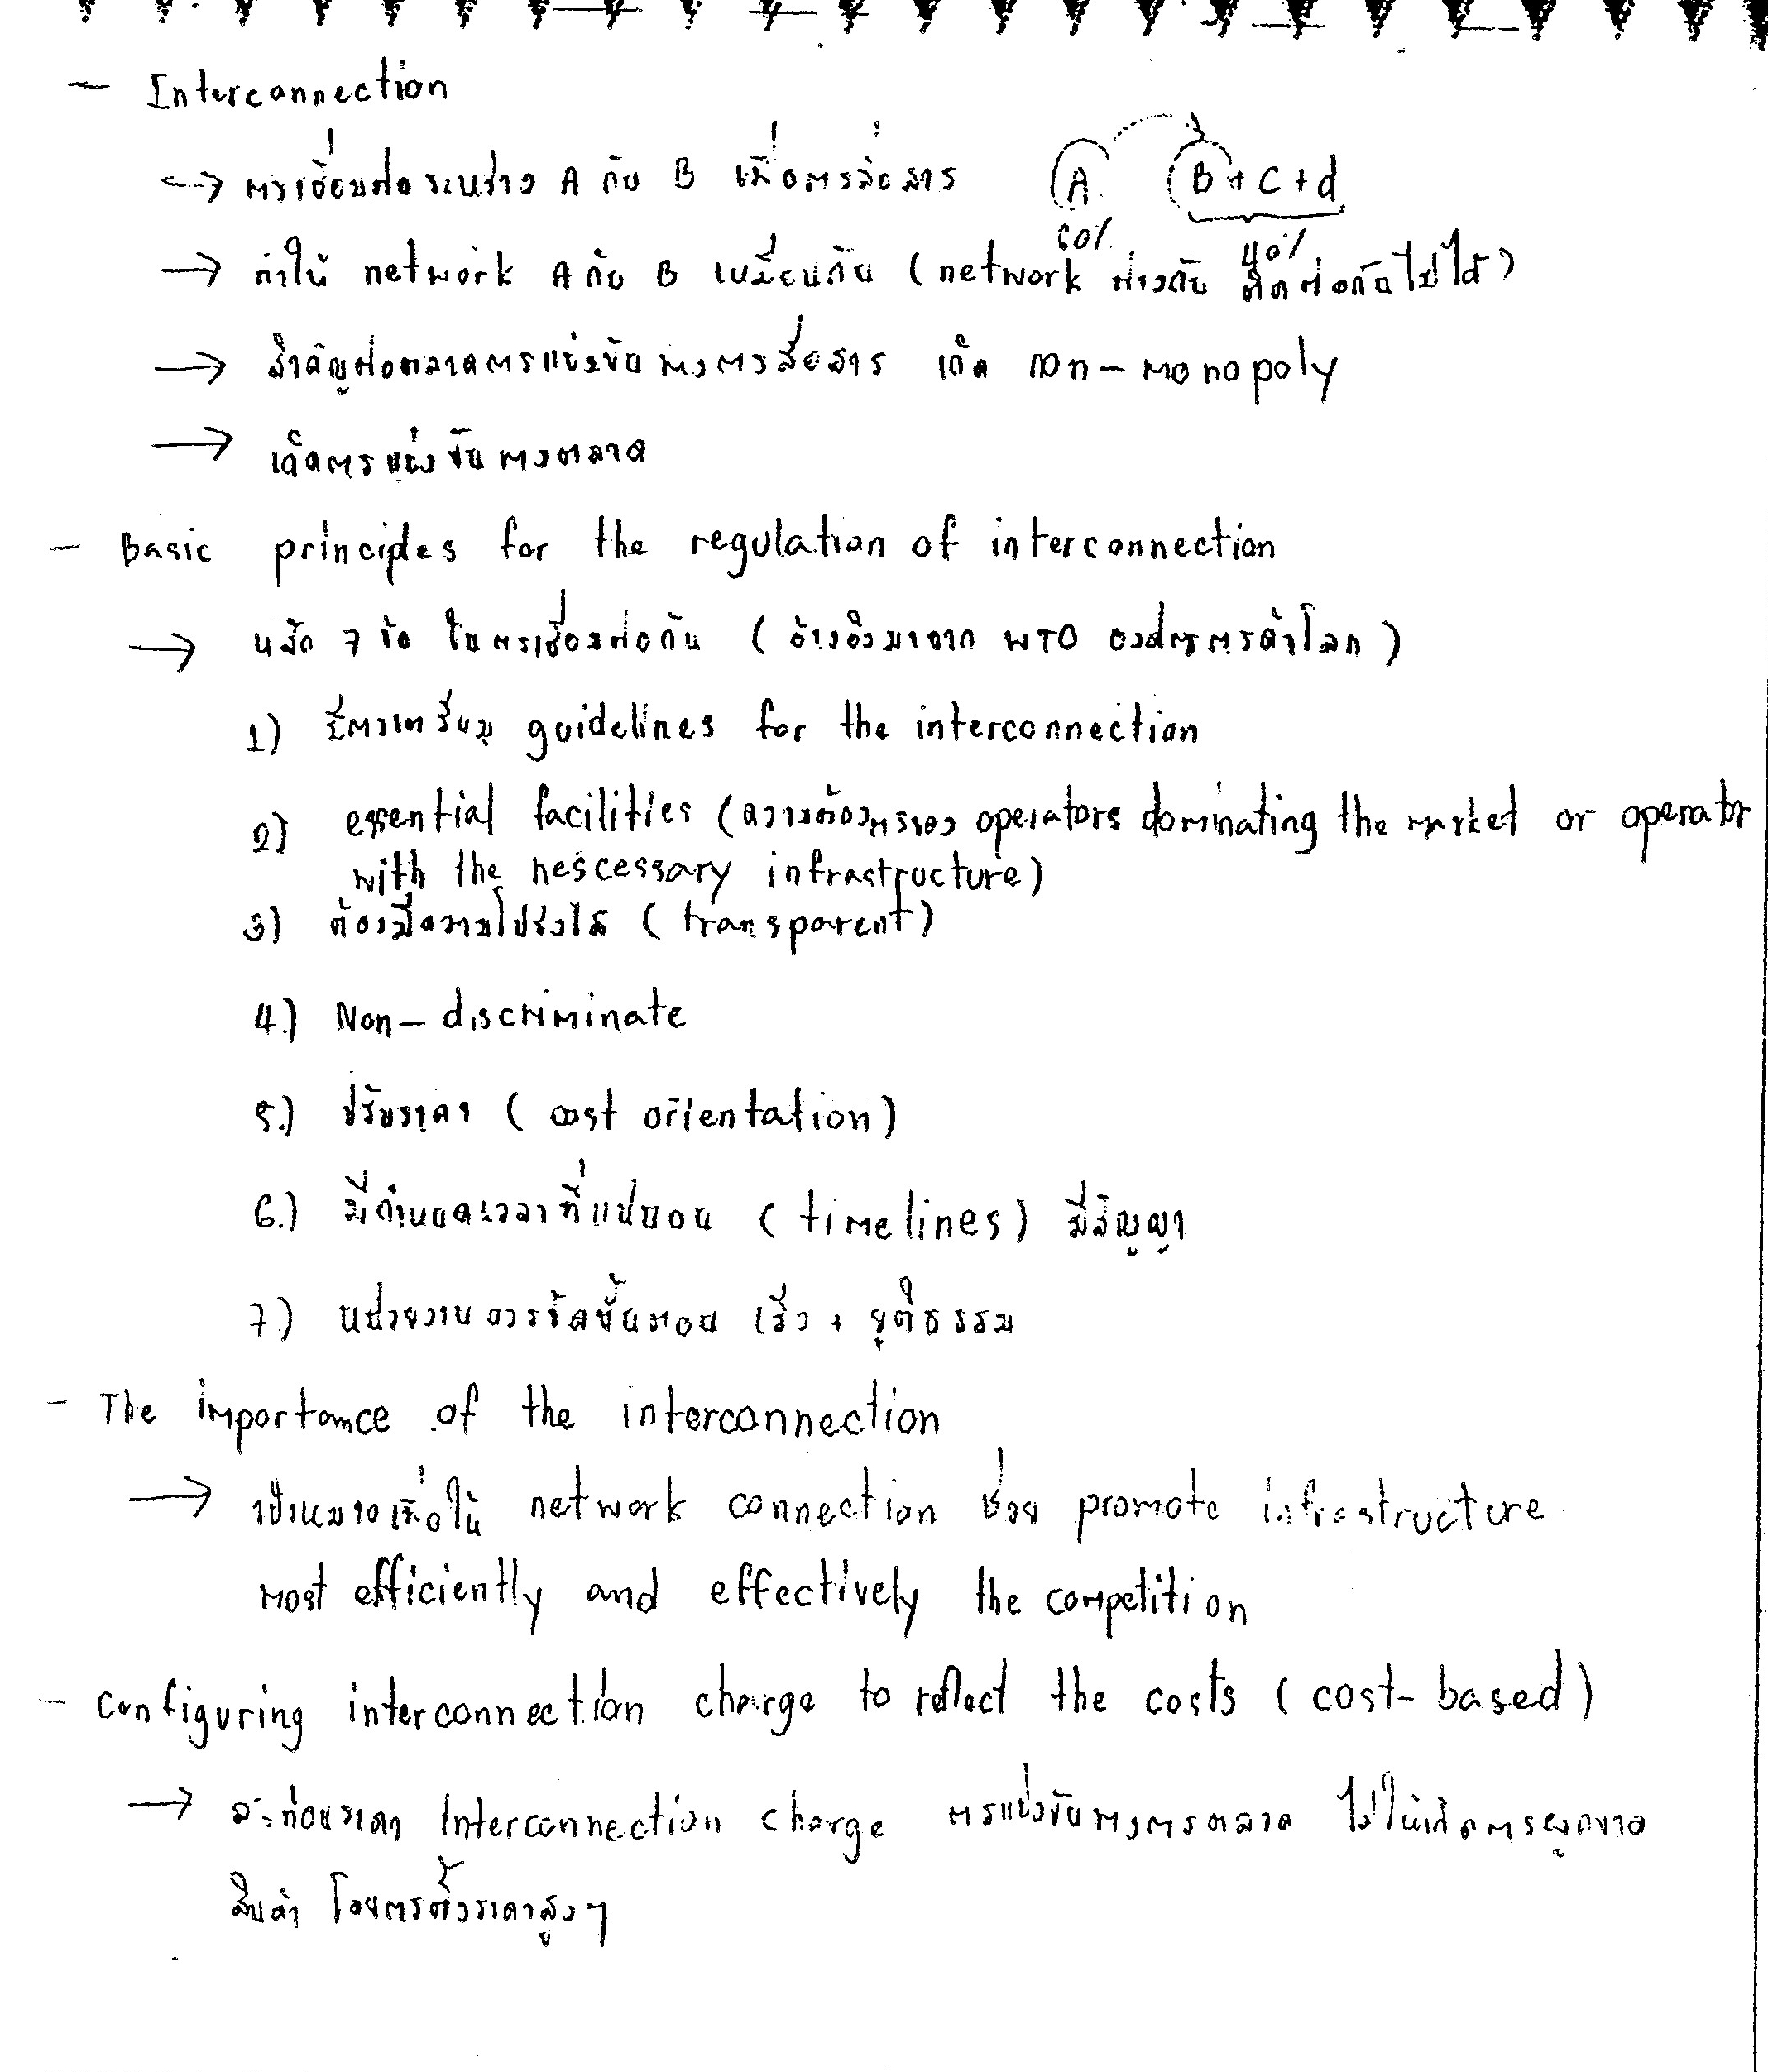 - Interconnection
→ การเชื่อมต่อระหว่าง A กับ B เพื่อการสื่อสาร A B + C + d
60% 40%
→ ทำให้ network A กับ B เหมือนกัน (network ต่างกัน ติดต่อกันไม่ได้)
→ สำคัญต่อตลาดการแข่งขันทางการสื่อสาร เกิด non-monopoly
→ เกิดการแข่งขันทางตลาด
- Basic principles for the regulation of interconnection
→ หลัก 7 ข้อ ในการเชื่อมต่อกัน (อ้างอิงมาจาก WTO องค์การการค้าโลก)
1) มีการเตรียม guidelines for the interconnection
2) essential facilities (ความต้องการของ operators dominating the market or operator
with the nescessary infrastructure)
3) ต้องมีความโปร่งใส (transparent)
4.) Non-discriminate
5.) ปรับราคา (cost orientation)
6.) มีกำหนดเวลาที่แน่นอน (timelines) มีสัญญา
7.) หน่วยงานควรจัดขั้นตอน เร็ว + ยุติธรรม
- The importance of the interconnection
→ เป้าหมายเพื่อให้ network connection ช่วย promote infrastructure
most efficiently and effectively the competition
- Configuring interconnection charge to reflect the costs (cost-based)
→ สะท้อนราคา Interconnection charge การแข่งขันทางการตลาด ไม่ให้เกิดการผูกขาด
สินค้า โดยการตั้งราคาสูงๆ